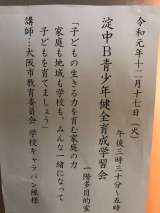 令和元年十二月十七日（火）
午後三時三十分～五時
淀中B青少年健全育成学習会
一階多目的室
「子どもの生きる力を育む家庭の力
家庭も地域も学校も、みんな一緒になって
子どもを育てましょう」
講師…大阪市教育委員会　学校キャラバン隊様